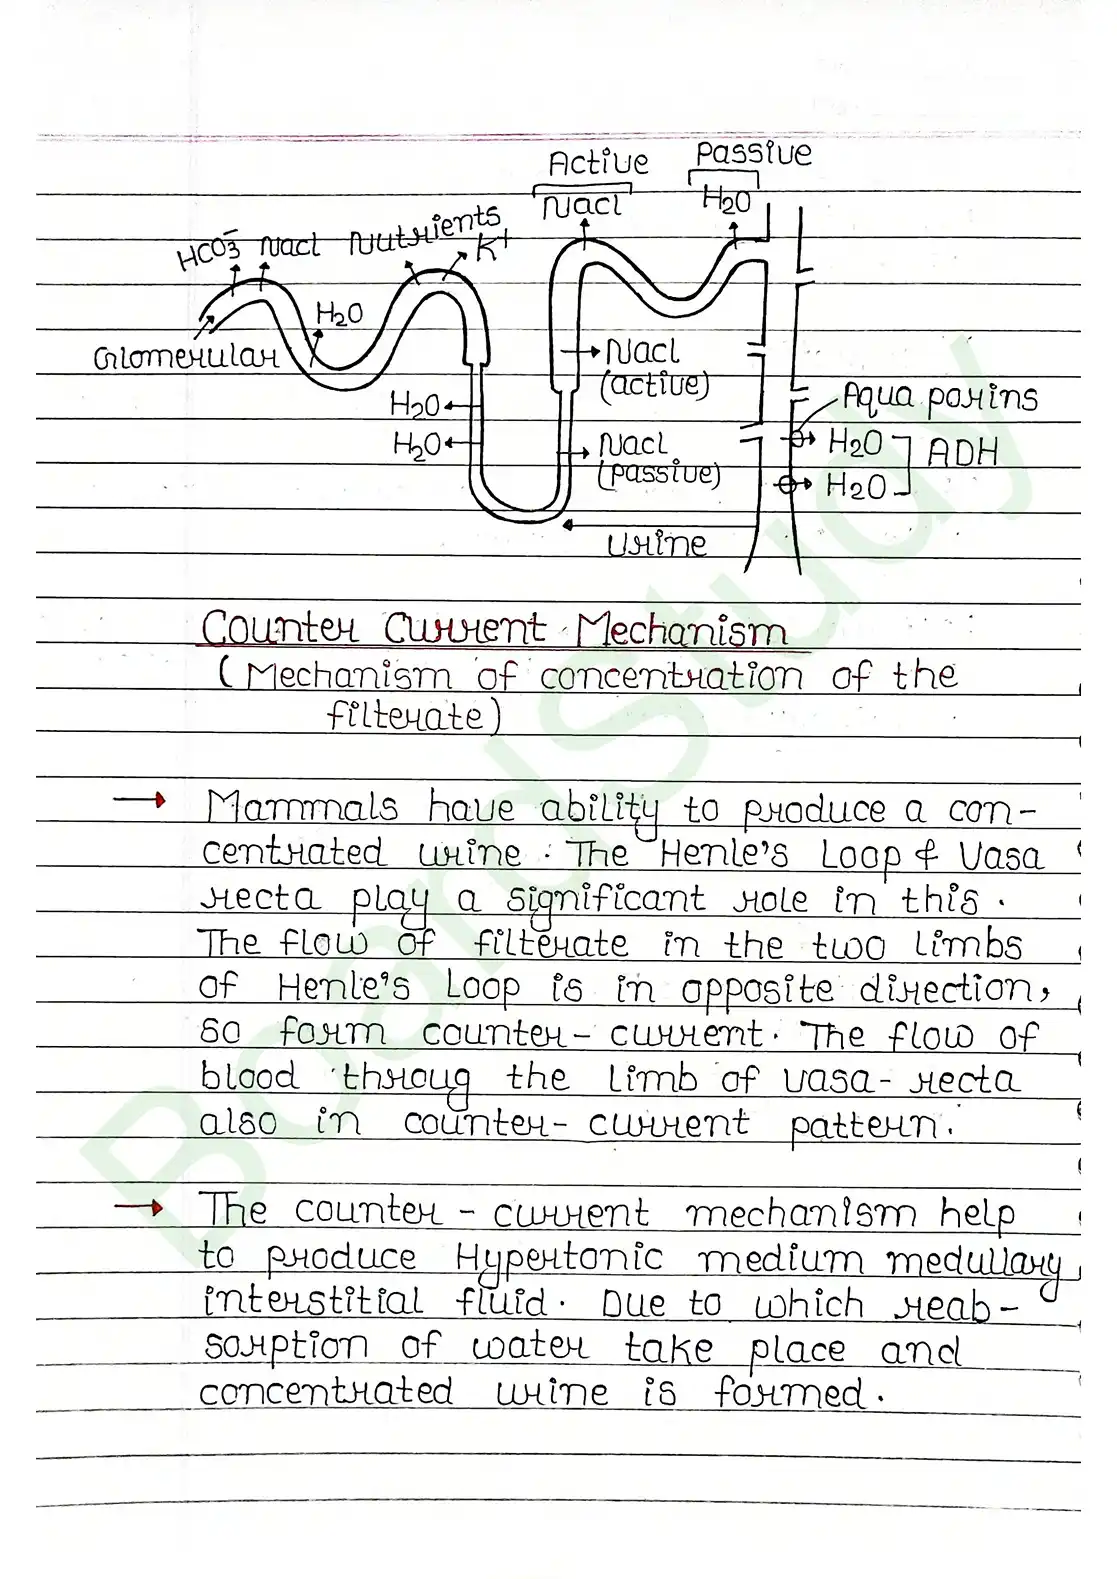 Active Passive
Nacl H2O
HCO3̄ Nacl Nutrients K+
H2O
Glomerular
Nacl
(active)
H2O
Aqua porins
H2O
Nacl
(passive)
H2O
H2O
ADH
Urine
Counter Current Mechanism
(Mechanism of concentration of the
filterate)
→ Mammals have ability to produce a con-
centrated urine. The Henle's Loop & Vasa
recta play a significant role in this.
The flow of filterate in the two limbs
of Henle's Loop is in opposite direction,
so form counter-current. The flow of
blood throug the limb of vasa-recta
also in counter-current pattern.
→ The counter-current mechanism help
to produce Hypertonic medium medullary
interstitial fluid. Due to which reab-
sorption of water take place and
concentrated urine is formed.
BoardStudy